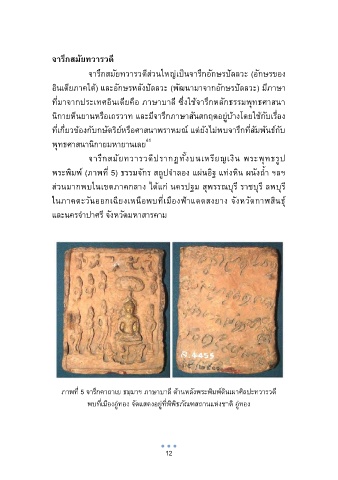 จารึกสมัยทวารวดี
จารึกสมัยทวารวดีส่วนใหญ่เป็นจารึกอักษรปัลลวะ (อักษรของ
อินเดียภาคใต้) และอักษรหลังปัลลวะ (พัฒนามาจากอักษรปัลลวะ) มีภาษา
ที่มาจากประเทศอินเดียคือ ภาษาบาลี ซึ่งใช้จารึกหลักธรรมพุทธศาสนา
นิกายหินยานหรือเถรวาท และมีจารึกภาษาสันสกฤตอยู่บ้างโดยใช้กับเรื่อง
ที่เกี่ยวข้องกับกษัตริย์หรือศาสนาพราหมณ์ แต่ยังไม่พบจารึกที่สัมพันธ์กับ
พุทธศาสนานิกายมหายานเลย
จารึกสมัยทวารวดีปรากฏทั้งบนเหรียญเงิน พระพุทธรูป
พระพิมพ์ (ภาพที่ 5) ธรรมจักร สถูปจำลอง แผ่นอิฐ แท่งหิน ผนังถ้ำ ฯลฯ
ส่วนมากพบในเขตภาคกลาง ได้แก่ นครปฐม สุพรรณบุรี ราชบุรี ลพบุรี
ในภาคตะวันออกเฉียงเหนือพบที่เมืองฟ้าแดดสงยาง จังหวัดกาฬสินธุ์
และนครจำปาศรี จังหวัดมหาสารคาม
ภาพที่ 5 จารึกคาถาเย ธมฺมาฯ ภาษาบาลี ด้านหลังพระพิมพ์ดินเผาศิลปะทวารวดี
พบที่เมืองอู่ทอง จัดแสดงอยู่ที่พิพิธภัณฑสถานแห่งชาติ อู่ทอง
12